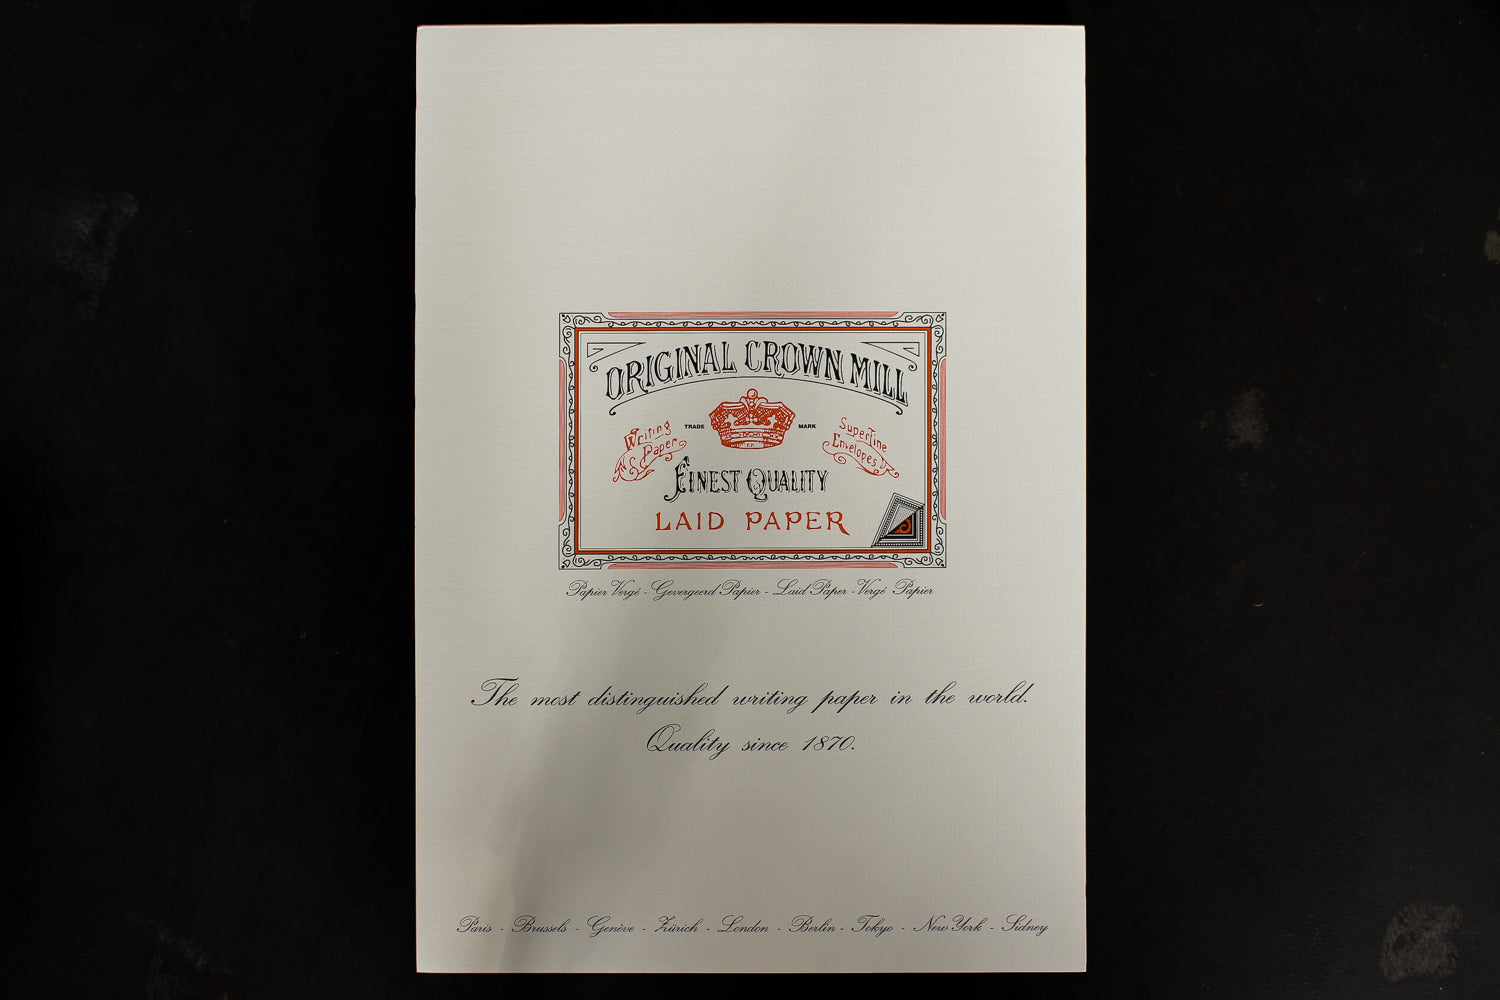 ORIGINAL CROWN MILL
Writing Paper
TRADE MARK
Superfine Envelopes
FINEST QUALITY
LAID PAPER
Papier Vergé - Gevergeerd Papier - Laid Paper - Vergé Papier
The most distinguished writing paper in the world.
Quality since 1870.
Paris - Brussels - Genève - Zürich - London - Berlin - Tokyo - New York - Sidney